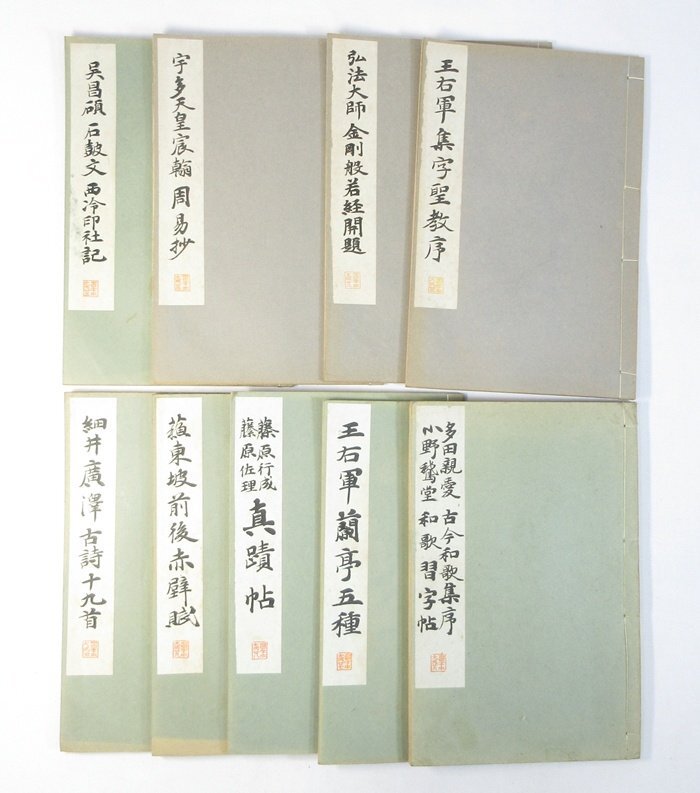 王右軍 集字聖教序
弘法大師 金剛般若経開題
宇多天皇宸翰 周易抄
吴昌碩 石鼓文 西泠印社記
多田親愛 古今和歌集序
小野鵞堂 和歌習字帖
王右軍蘭亭五種
藤原行成
藤原佐理
真蹟帖
蘇東坡前後赤壁賦
細井廣澤古詩十九首